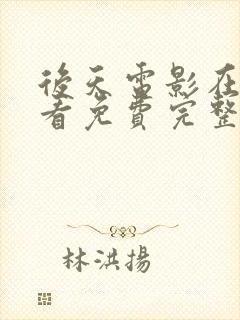 後天電影在
看免費完整
林洪揚